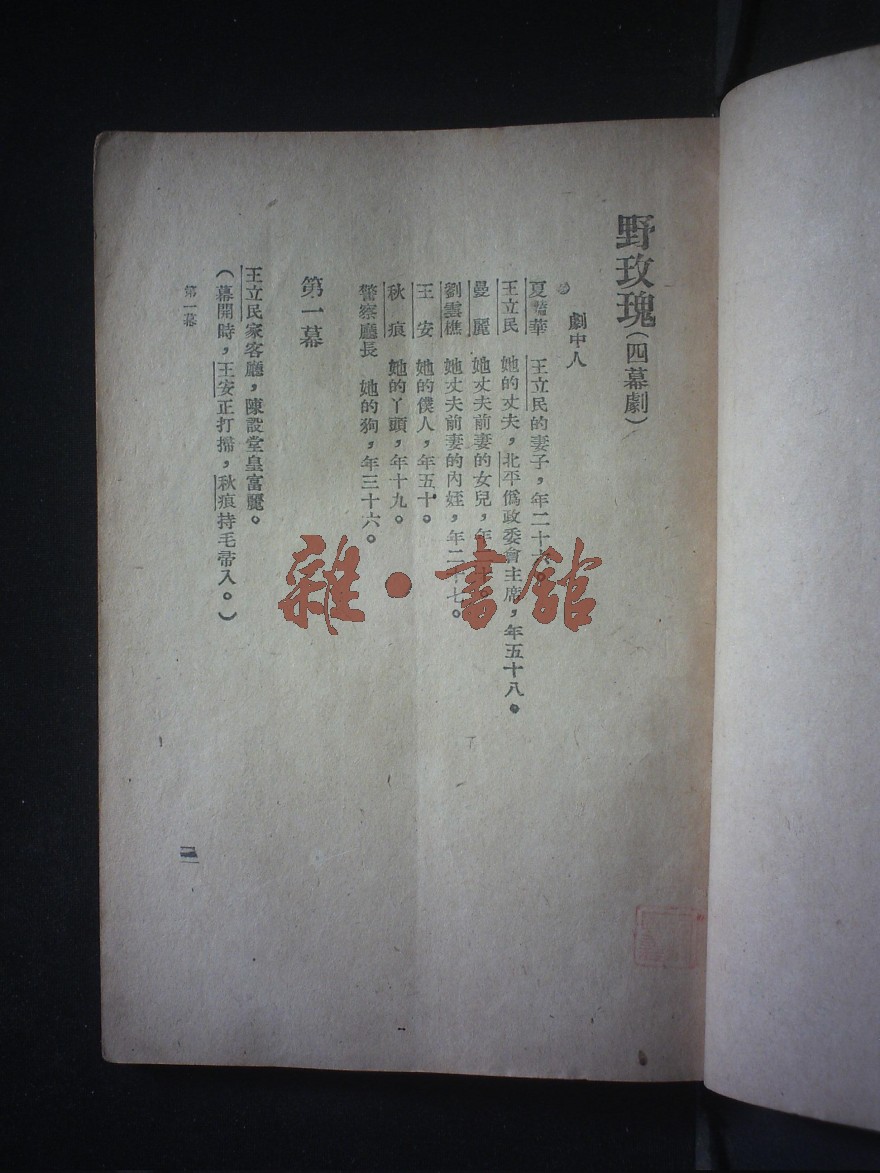 野玫瑰(四幕劇)
劇中人
夏豔華 王立民的妻子,年二十六。
王立民 她的丈夫,北平僞政委會主席,年五十八。
曼麗 她丈夫前妻的女兒,年
劉雲樵 她丈夫前妻的內姪,年二十七。
王安 她的僕人,年五十。
秋痕 她的丫頭,年十九。
警察廳長 她的狗,年三十六。
第一幕
王立民家客廳,陳設堂皇富麗。
(幕開時,王安正打掃,秋痕持毛帚入。)
第一幕
雜·書館